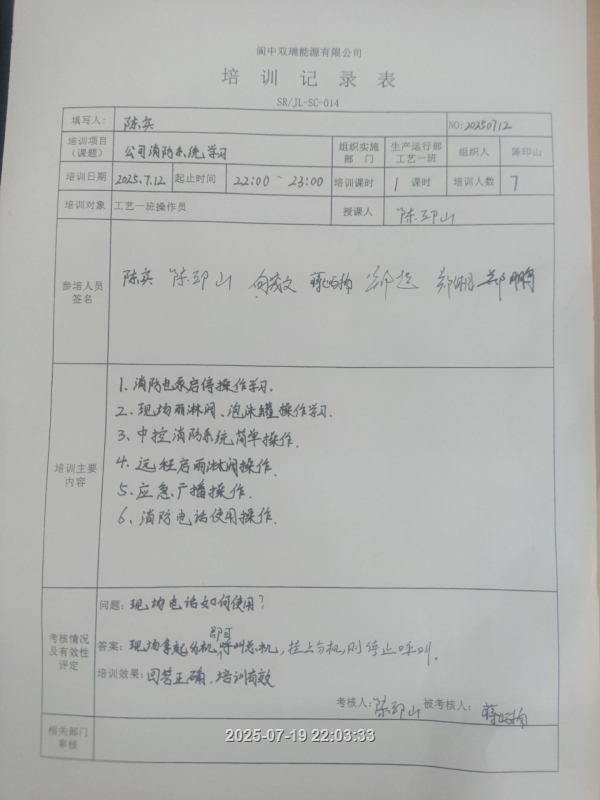 阆中双瑞能源有限公司
培训记录表
SR/JL-SC-014
填写人： 陈实 NO:20250712
培训项目（课题） 公司消防系统学习 组织实施部门 生产运行部工艺一班 组织人 陈印山
培训日期 2025.7.12 起止时间 22:00 ~ 23:00 培训课时 1 课时 培训人数 7
培训对象 工艺一班操作员 授课人 陈印山
参培人员签名 陈实 陈印山
培训主要内容
1、消防电泵启停操作学习.
2、现场雨淋阀、泡沫罐操作学习.
3、中控消防系统简单操作.
4、远程启雨淋阀操作.
5、应急广播操作.
6、消防电话使用操作.
考核情况及有效性评定
问题：现场电话如何使用？
答案：现场拿起分机,即可呼叫总机,挂上分机,则停止呼叫.
培训效果：回答正确、培训有效
考核人：陈印山 被考核人：
相关部门审核
2025-07-19 22:03:33